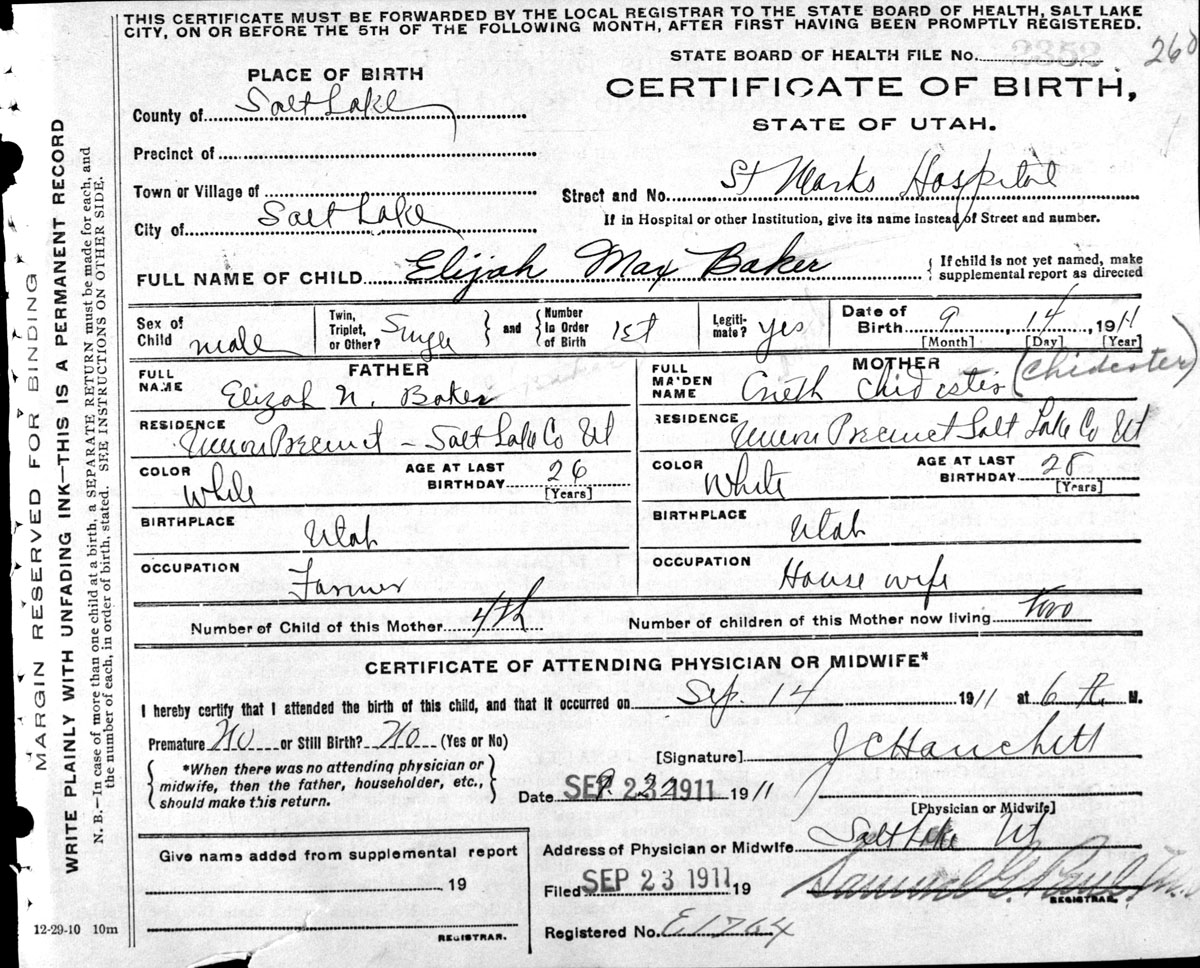 THIS CERTIFICATE MUST BE FORWARDED BY THE LOCAL REGISTRAR TO THE STATE BOARD OF HEALTH, SALT LAKE
CITY, ON OR BEFORE THE 5TH OF THE FOLLOWING MONTH, AFTER FIRST HAVING BEEN PROMPTLY REGISTERED.
STATE BOARD OF HEALTH FILE No. 2352 260
PLACE OF BIRTH
CERTIFICATE OF BIRTH,
STATE OF UTAH.
County of Salt Lake
Precinct of
Town or Village of
Street and No. St Marks Hospital
City of Salt Lake
If in Hospital or other Institution, give its name instead of Street and number.
FULL NAME OF CHILD Elijah Max Baker
If child is not yet named, make
supplemental report as directed
Sex of Child male
Twin, Triplet, or Other? Single
and Number In Order of Birth 1st
Legiti-mate? yes
Date of Birth 9, 14, 1911
[Month] [Day] [Year]
FATHER
FULL NAME Elizah N. Baker
RESIDENCE Union Precinct - Salt Lake Co Ut
COLOR White
AGE AT LAST BIRTHDAY 26
[Years]
BIRTHPLACE Utah
OCCUPATION Farmer
MOTHER
FULL MAIDEN NAME Chidester (Chidester)
RESIDENCE Union Precinct Salt Lake Co Ut
COLOR White
AGE AT LAST BIRTHDAY 28
[Years]
BIRTHPLACE Utah
OCCUPATION House wife
Number of Child of this Mother 4th
Number of children of this Mother now living two
CERTIFICATE OF ATTENDING PHYSICIAN OR MIDWIFE*
I hereby certify that I attended the birth of this child, and that it occurred on Sep. 14 1911 at 6 M.
Premature No or Still Birth? No (Yes or No)
*When there was no attending physician or
midwife, then the father, householder, etc.,
should make this return.
[Signature] J C Hanchett
Date SEP 23 1911 1911
[Physician or Midwife]
Give name added from supplemental report
19
REGISTRAR.
Address of Physician or Midwife Salt Lake Ut
Filed SEP 23 1911 19
Samuel G. Paul
REGISTRAR.
Registered No. E1764
12-29-10 10m
MARGIN RESERVED FOR BINDING
WRITE PLAINLY WITH UNFADING INK—THIS IS A PERMANENT RECORD
N. B.—In case of more than one child at a birth, a SEPARATE RETURN must be made for each, and
the number of each, in order of birth, stated. SEE INSTRUCTIONS ON OTHER SIDE.